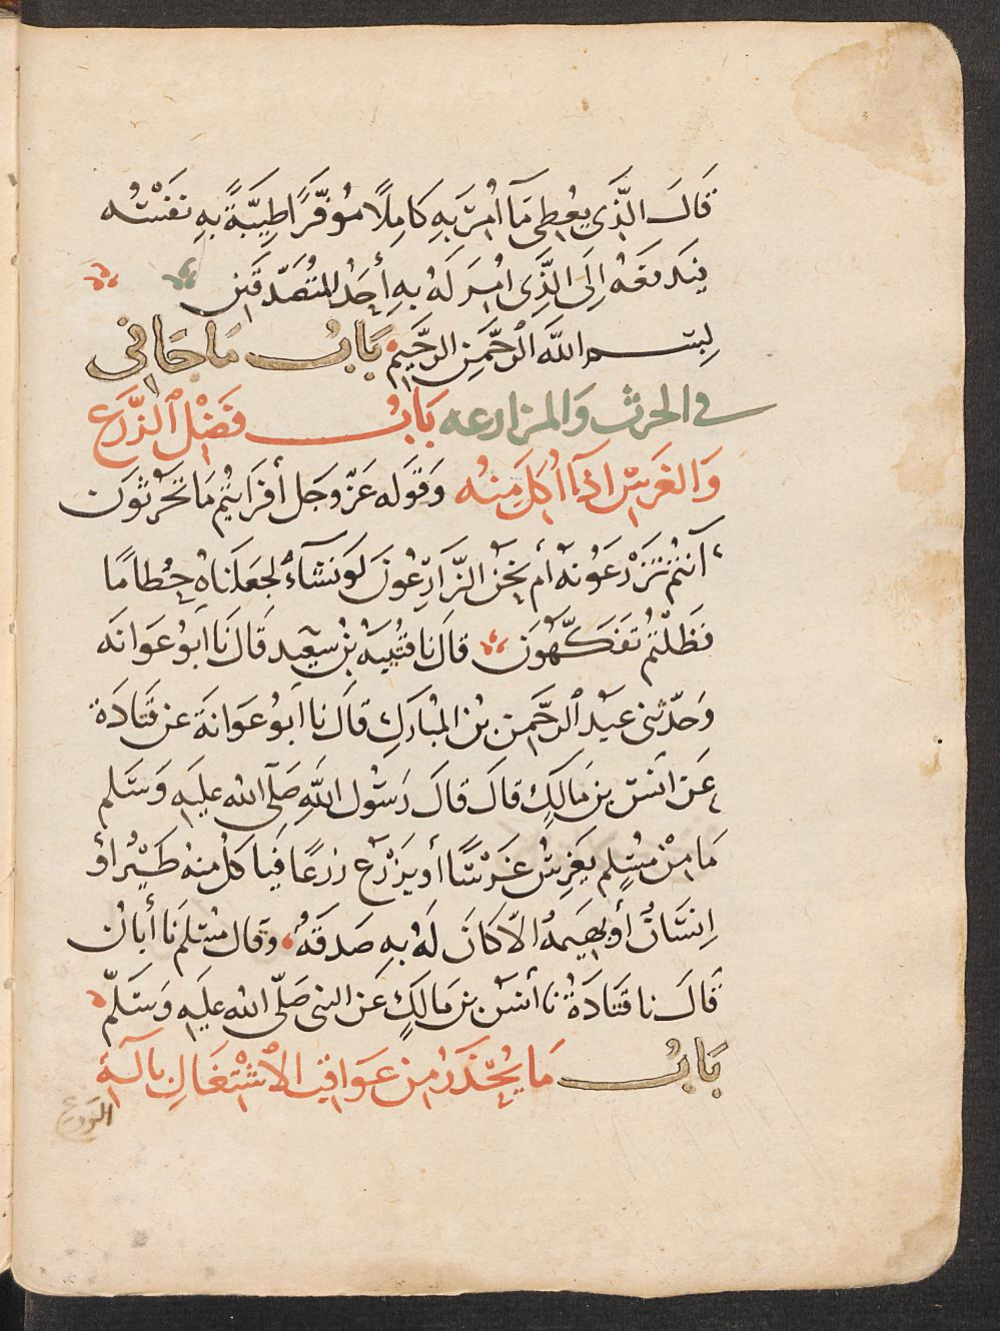 قَالَ الَّذِي يُعْطِي مَا أُمِرَ بِهِ كَامِلًا مُوَفَّرًا طَيِّبَةً بِهِ نَفْسُهُ
فَيَدْفَعُهُ إِلَى الَّذِي أُمِرَ لَهُ بِهِ أَحَدُ الْمُتَصَدِّقَيْنِ
بِسْمِ اللَّهِ الرَّحْمَنِ الرَّحِيمِ بَابُ مَا جَا فِي
في الحرث وَالمزارعه بَابُ فَضْلِ الزَّرْعِ
وَالغَرْسِ اذَا أُكِلَ مِنْهُ وَقَوله عَزّ وجَل أَفَرَايْتُمْ مَا تَحْرُثُونَ
ءَأَنْتُمْ تَزْرَعُونَهُ أَمْ نَحْنُ الزَّارِعُونَ لَوْ نَشَاءُ لَجَعَلْنَاهُ حُطَامًا
فَظَلْتُمْ تَفَكَّهُونَ قَالَ نَا قُتَيْبَةُ بْنُ سَعِيدٍ قَالَ نَا ابُو عَوَانَه
وَحَدَّثَنِي عَبْد الرَّحْمَنِ بْنُ المُبَارَكِ قَالَ نَا ابُو عَوَانَةَ عَنْ قَتَادَةَ
عَنْ انَسِ بْنِ مَالِكٍ قَالَ قَالَ رَسُولُ اللَّهِ صَلَّى اللهُ عَلَيْهِ وَسَلَّم
مَا مِنْ مُسْلِمٍ يَغْرِسُ غَرْسًا أَو يَزْرَعُ زَرْعًا فَيَاكُلُ مِنهُ طَيْرٌ اوْ
اِنسَانٌ أَو بَهِيمَةٌ الَّا كَانَ لَهُ بِهِ صَدَقَةٌ وَقَالَ مُسْلِمٌ نَا أَبَانُ
قَالَ نَا قَتَادَةُ نَا أَنَسُ بْنُ مَالِكٍ عَنِ النبي صَلَّى اللهُ عَلَيْهِ وَسَلَّمَ
بَابُ مَا يُحْذَرُ مِنْ عَوَاقِبِ الْاشْتِغَالِ بِالَةِ
الزرع